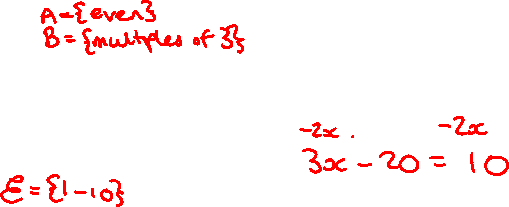 A={even}
B={multiples of 3}
-2x . -2x
3x - 20 = 10
ℰ={1-10}